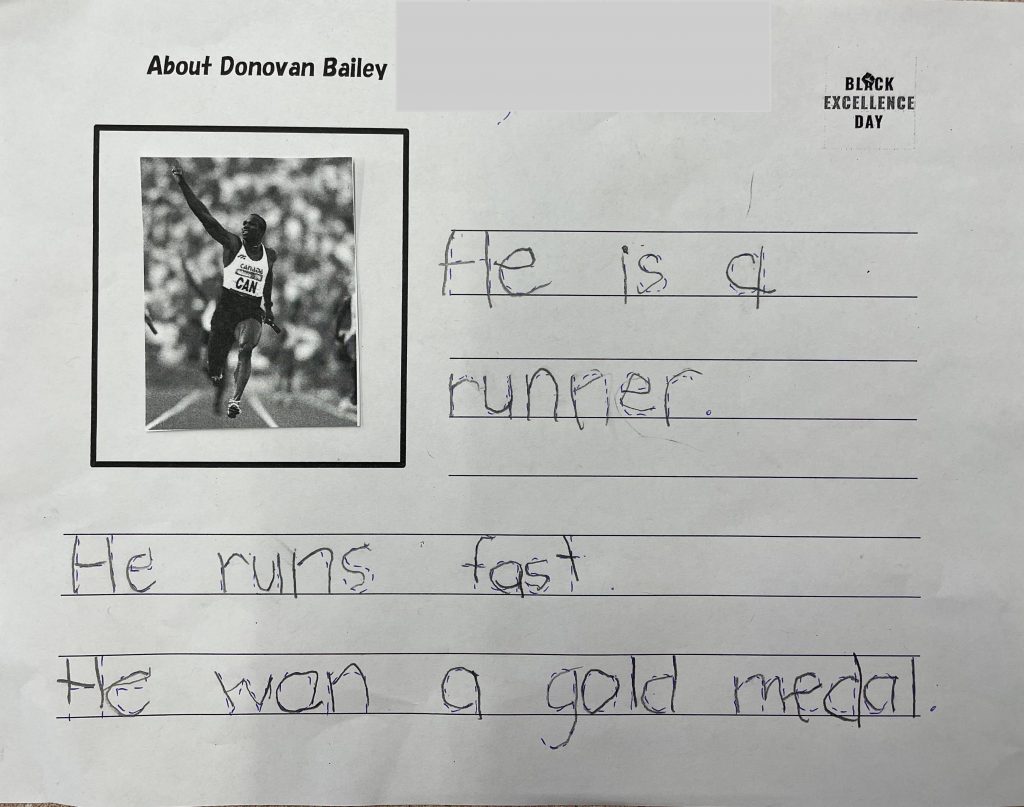 About Donovan Bailey
BLACK
EXCELLENCE
DAY
CANADA
CAN
He is a
runner.
He runs fast.
He won a gold medal.